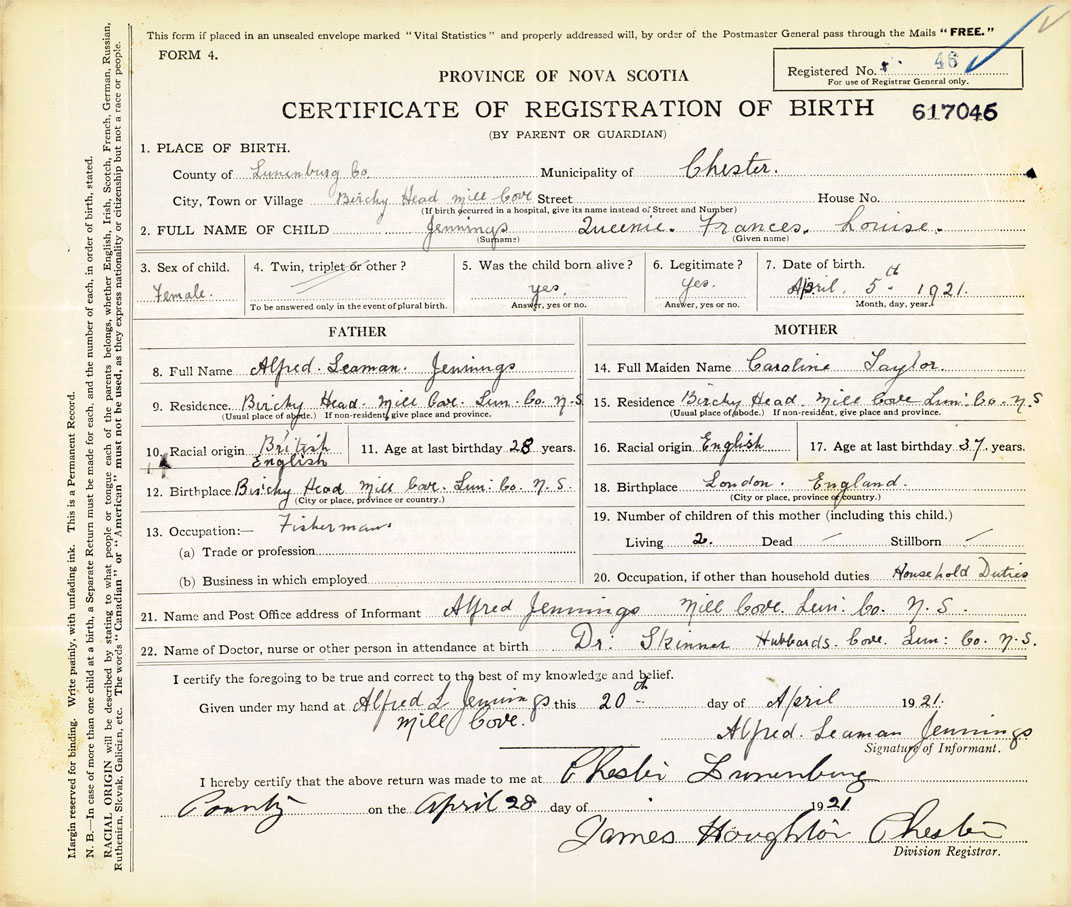 This form if placed in an unsealed envelope marked "Vital Statistics" and properly addressed will, by order of the Postmaster General pass through the Mails "FREE."
FORM 4.
Registered No. 46
For use of Registrar General only.
PROVINCE OF NOVA SCOTIA
CERTIFICATE OF REGISTRATION OF BIRTH 617046
(BY PARENT OR GUARDIAN)
1. PLACE OF BIRTH.
County of Lunenburg Co. Municipality of Chester.
City, Town or Village Birchy Head Mill Cove Street House No.
(If birth occurred in a hospital, give its name instead of Street and Number)
2. FULL NAME OF CHILD Jennings Queenie. Frances. Louise.
(Surname) (Given name)
3. Sex of child. 4. Twin, triplet or other? 5. Was the child born alive? 6. Legitimate? 7. Date of birth.
Female. yes. Yes. April. 5th 1921.
To be answered only in the event of plural birth. Answer, yes or no. Answer, yes or no. Month, day, year.
FATHER
8. Full Name Alfred. Seaman. Jennings
9. Residence. Birchy Head. Mill Cove. Lun. Co. N.S
(Usual place of abode.) If non-resident, give place and province.
10. Racial origin British English 11. Age at last birthday 28 years.
12. Birthplace Birchy Head Mill Cove. Lun: Co. N.S.
(City or place, province or country.)
13. Occupation:— Fisherman
(a) Trade or profession
(b) Business in which employed
MOTHER
14. Full Maiden Name Caroline Taylor.
15. Residence Birchy Head. Mill Cove Lun: Co. N.S
(Usual place of abode.) If non-resident, give place and province.
16. Racial origin English 17. Age at last birthday 37 years.
18. Birthplace London. England.
(City or place, province or country.)
19. Number of children of this mother (including this child.)
Living 2. Dead — Stillborn —
20. Occupation, if other than household duties Household Duties
21. Name and Post Office address of Informant Alfred Jennings Mill Cove. Lun: Co. N.S.
22. Name of Doctor, nurse or other person in attendance at birth Dr. Skinner Hubbards. Cove. Lun: Co. N.S.
I certify the foregoing to be true and correct to the best of my knowledge and belief.
Given under my hand at Alfred L Jennings this 20th day of April 1921.
Mill Cove.
Alfred. Seaman Jennings
Signature of Informant.
I hereby certify that the above return was made to me at Chester Lunenburg
County on the April 28 day of 1921
James Houghton Chester
Division Registrar.
Margin reserved for binding. Write plainly, with unfading ink. This is a Permanent Record.
N. B.—In case of more than one child at a birth, a Separate Return must be made for each, and the number of each, in order of birth, stated.
RACIAL ORIGIN will be described by stating to what people or tongue each of the parents belongs, whether English, Irish, Scotch, French, German, Russian,
Ruthenian, Slovak, Galician, etc. The words "Canadian" or "American" must not be used, as they express nationality or citizenship but not a race or people.